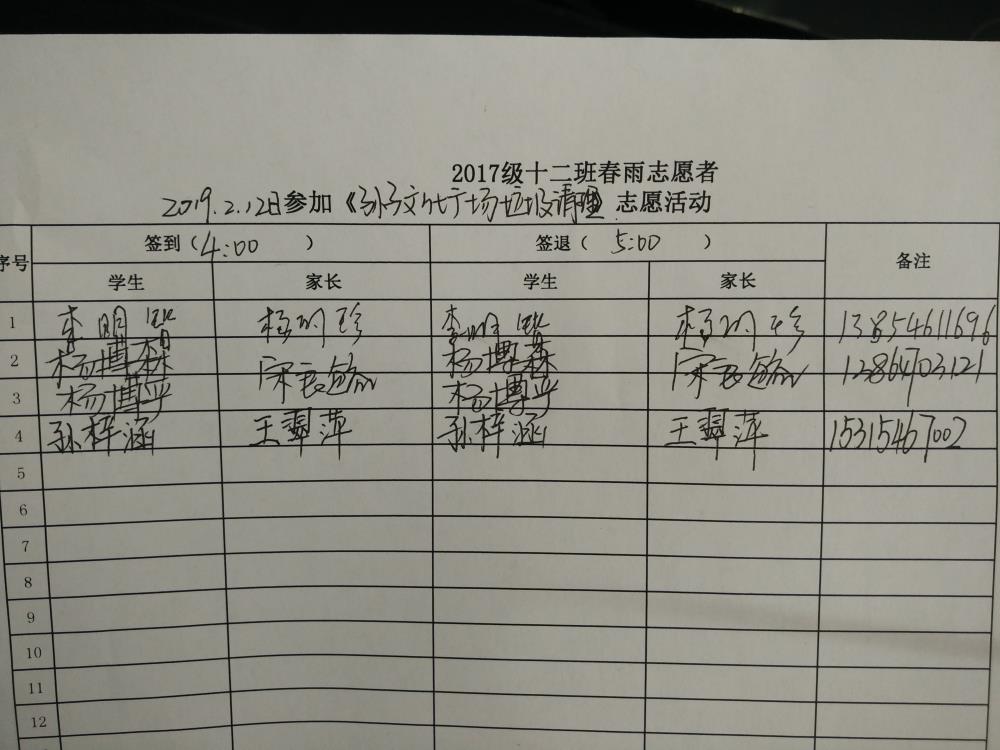 2017级十二班春雨志愿者
2019.2.12日参加《孙子文化广场垃圾清理》志愿活动
序号 签到（4:00 ） 签退（ 5:00 ） 备注
学生 家长 学生 家长
1 李明 李明 13854611696
2 杨博森 宋 杨博森 宋 12864703121
3 杨博宇 杨博宇
4 孙梓涵 王翠萍 孙梓涵 王翠萍 15315467002
5
6
7
8
9
10
11
12